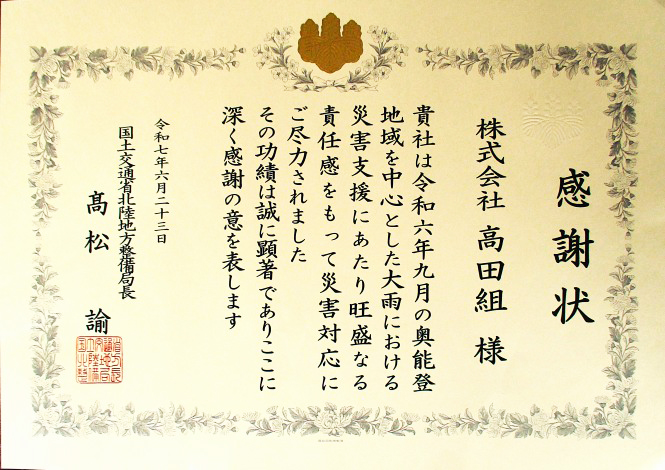 感謝状
株式会社 高田組 様
貴社は令和六年九月の奥能登
地域を中心とした大雨における
災害支援にあたり旺盛なる
責任感をもって災害対応に
ご尽力されました
その功績は誠に顕著でありここに
深く感謝の意を表します
令和七年六月二十三日
国土交通省北陸地方整備局長
髙松 諭